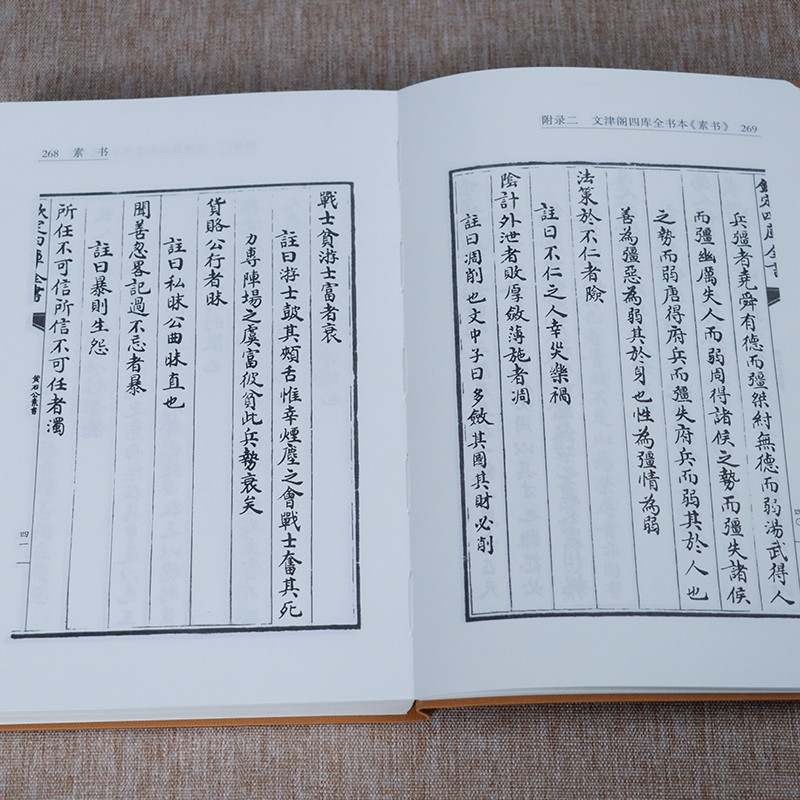 附录二 文津阁四库全书本《素书》 269
欽定四庫全書
兵彊者堯舜有德而彊桀紂無德而弱湯武得人
而彊幽厲失人而弱周得諸侯之勢而彊失諸侯
之勢而弱唐得府兵而彊失府兵而弱其於人也
善為彊惡為弱其於身也性為彊情為弱
法策於不仁者險
註曰不仁之人幸災樂禍
陰計外泄者敗厚斂薄施者凋
註曰凋削也文中子曰多斂其國其財必削
268 素 书
戰士貧游士富者衰
註曰游士鼓其頰舌惟幸煙塵之會戰士奮其死
力專陣場之虞富從貧此兵勢衰矣
貨賂公行者昧
註曰私昧公曲昧直也
聞善忽畧記過不忘者暴
註曰暴則生怨
所任不可信所信不可任者濁
欽定四庫全書
黃石公素書
四一